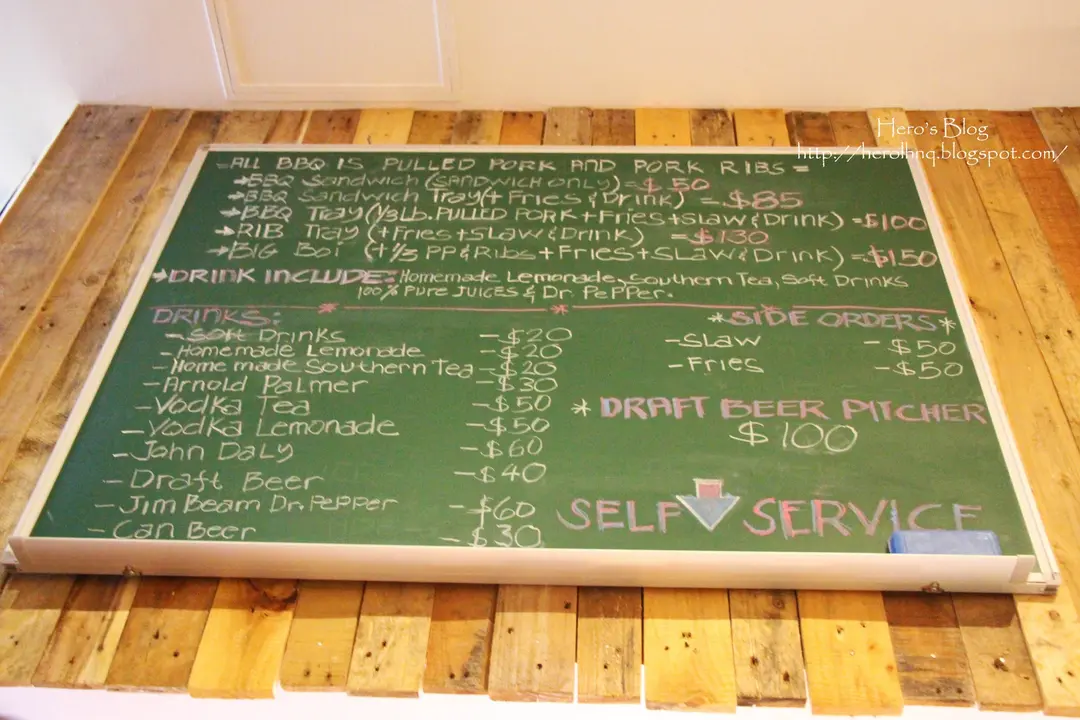 Hero's Blog
http://herolhnq.blogspot.com/
=ALL BBQ IS PULLED PORK AND PORK RIBS=
→BBQ Sandwich (SANDWICH ONLY) = $50
→BBQ Sandwich Tray (+ Fries & Drink) = $85
→BBQ Tray (1/3 Lb. PULLED PORK + Fries + Slaw & Drink) = $100
→RIB Tray (+ Fries + Slaw & Drink) = $130
→BIG Boi (+ 1/3 PP & Ribs + Fries + Slaw & Drink) = $150
→DRINK INCLUDE: Homemade Lemonade, Southern Tea, Soft Drinks
100% Pure Juices & Dr. Pepper.
DRINKS:
- Soft Drinks - $20
- Homemade Lemonade - $20
- Home made Southern Tea - $20
- Arnold Palmer - $30
- Vodka Tea - $50
- Vodka Lemonade - $50
- John Daly - $60
- Draft Beer - $40
- Jim Beam Dr. Pepper - $60
- Can Beer - $30
*SIDE ORDERS*
- Slaw - $50
- Fries - $50
* DRAFT BEER PITCHER
$100
SELF SERVICE